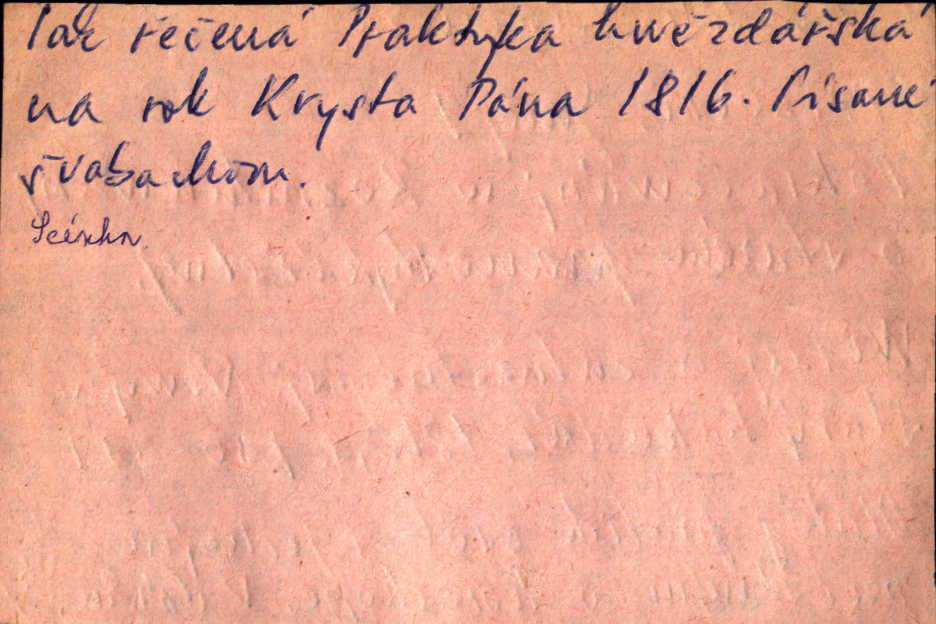 Tak řečená Praktyka hwězdářská
na rok Krysta Pána 1816. Písané
švabachom.